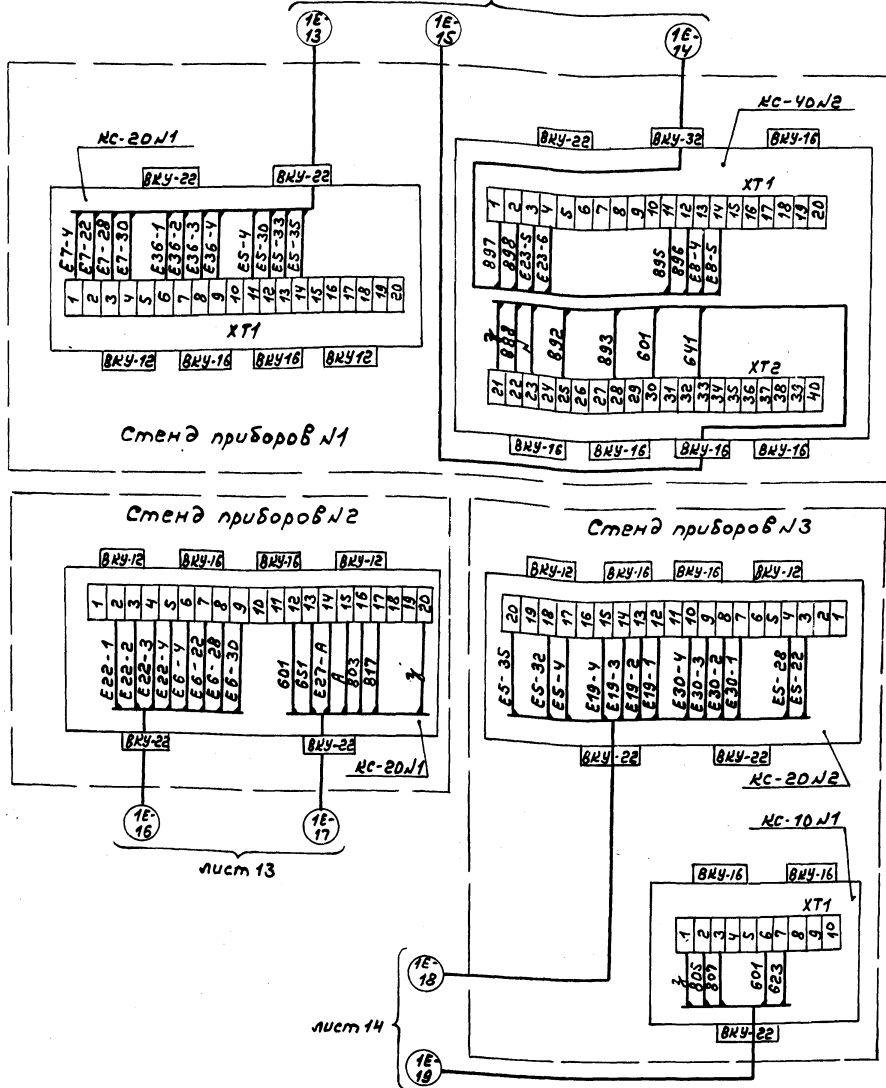 1Е-13
1Е-15
1Е-14
КС-20N1
ВКУ-22
ВКУ-22
Е7-4
Е7-22
Е7-28
Е7-30
Е36-1
Е36-2
Е36-3
Е36-4
Е5-4
Е5-30
Е5-33
Е5-35
1 2 3 4 5 6 7 8 9 10 11 12 13 14 15 16 17 18 19 20
ХТ1
ВКУ-12
ВКУ-16
ВКУ16
ВКУ12
Стенд приборов N1
КС-40N2
ВКУ-22
ВКУ-32
ВКУ-16
ХТ1
1 2 3 4 5 6 7 8 9 10 11 12 13 14 15 16 17 18 19 20
897
898
Е23-5
Е23-6
895
896
Е8-4
Е8-5
888
N
892
893
601
641
ХТ2
21 22 23 24 25 26 27 28 29 30 31 32 33 34 35 36 37 38 39 40
ВКУ-16
ВКУ-16
ВКУ-16
ВКУ-16
Стенд приборов N2
ВКУ-12
ВКУ-16
ВКУ-16
ВКУ-12
1 2 3 4 5 6 7 8 9 10 11 12 13 14 15 16 17 18 19 20
Е22-1
Е22-2
Е22-3
Е22-4
Е6-4
Е6-22
Е6-28
Е6-30
601
651
Е27-А
А
803
817
ВКУ-22
ВКУ-22
КС-20N1
1Е-16
1Е-17
лист 13
Стенд приборов N3
ВКУ-12
ВКУ-16
ВКУ-16
ВКУ-12
20 19 18 17 16 15 14 13 12 11 10 9 8 7 6 5 4 3 2 1
Е5-35
Е5-32
Е5-4
Е19-4
Е19-3
Е19-2
Е19-1
Е30-4
Е30-3
Е30-2
Е30-1
Е5-28
Е5-22
ВКУ-22
ВКУ-22
КС-20N2
КС-10N1
ВКУ-16
ВКУ-16
ХТ1
1 2 3 4 5 6 7 8 9 10
805
807
601
623
ВКУ-22
1Е-18
лист 14
1Е-19